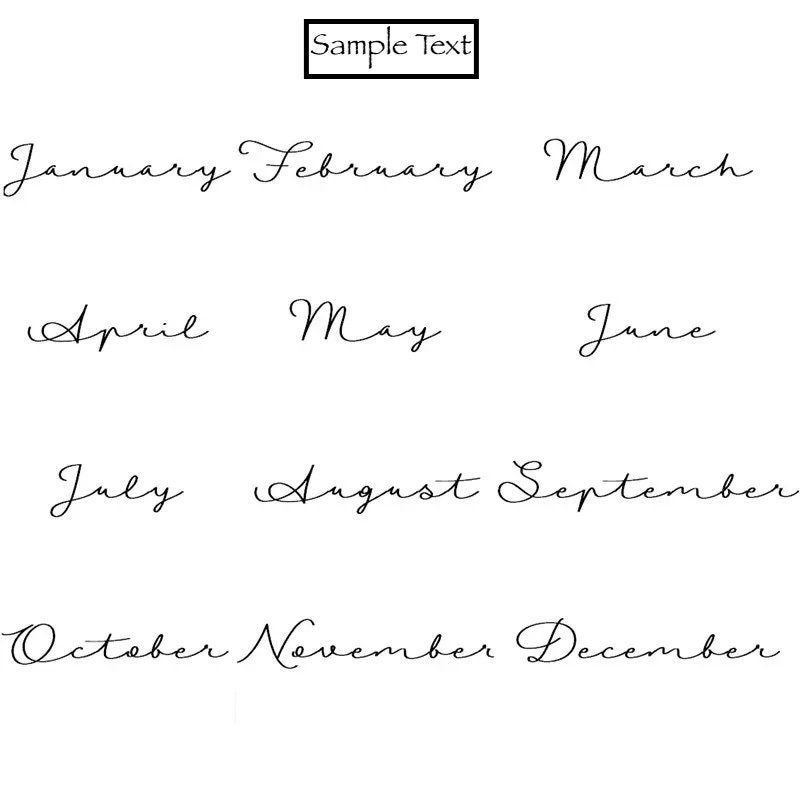 Sample Text
January February March
April May June
July August September
October November December